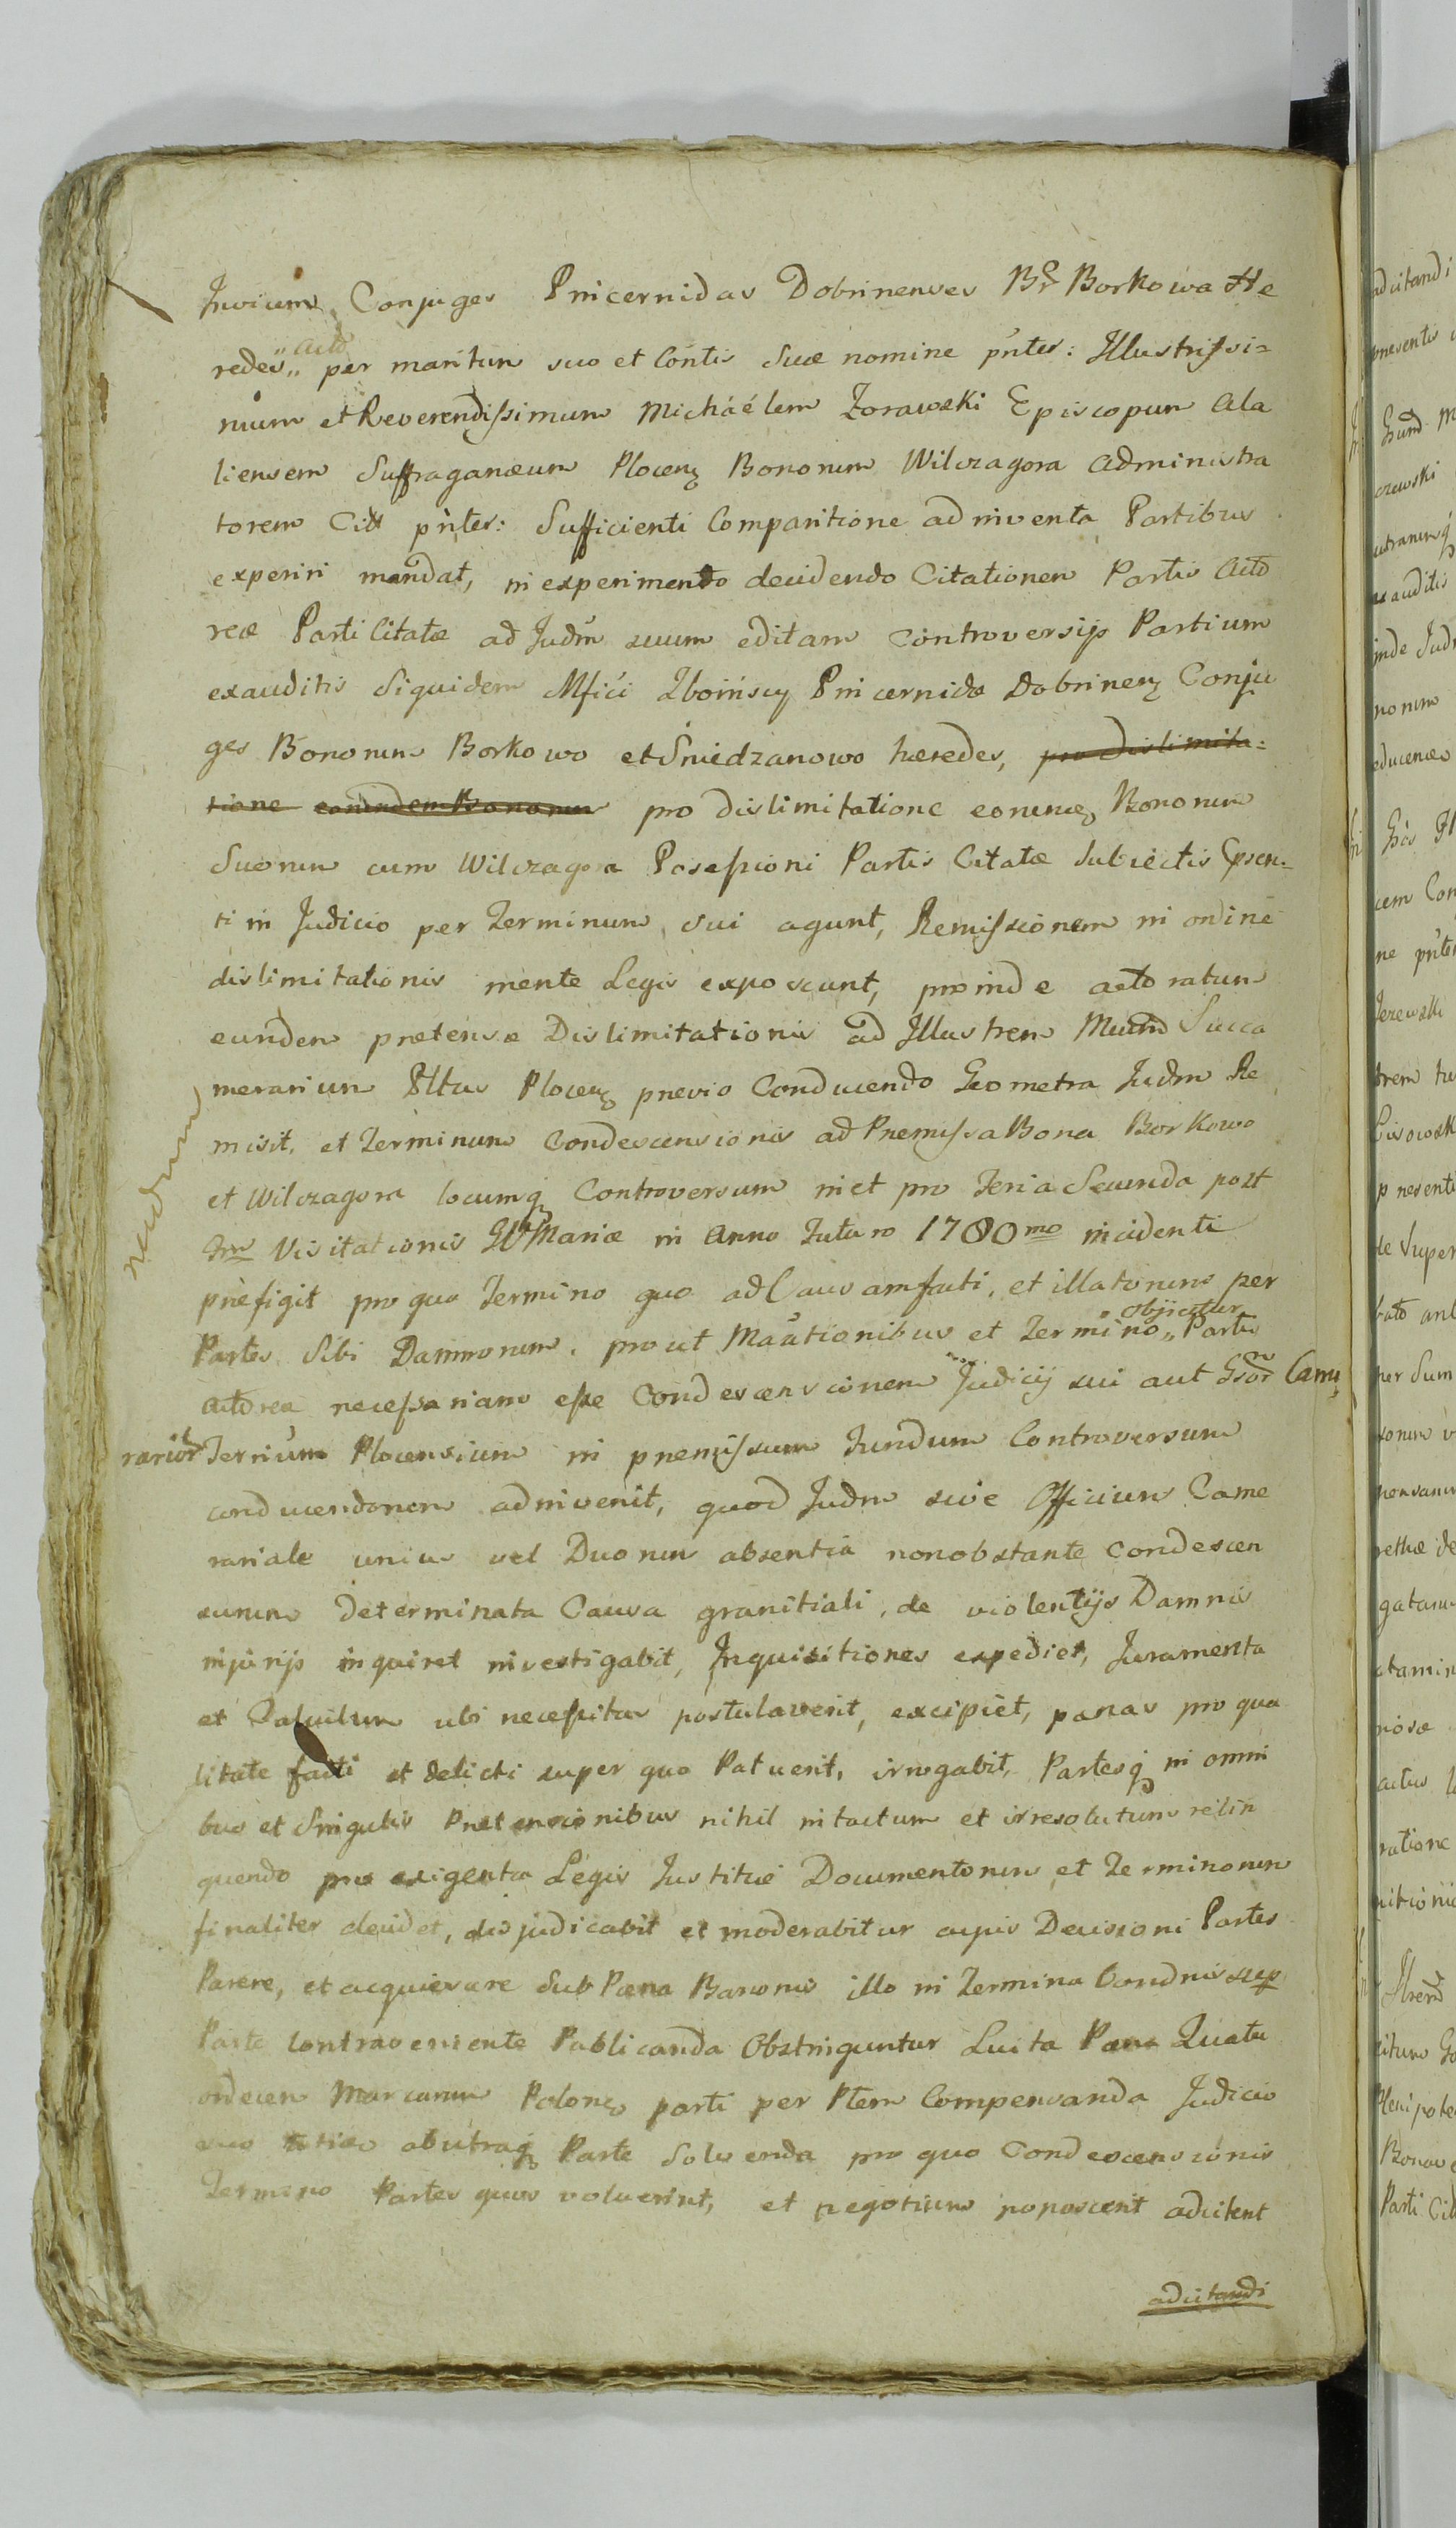 Invicem Conjuges Pincernidas Dobrinenses Br Borkowa He
redes „ Acto
per maritum suo et Contis Suæ nomine pntes: Illustrissi=
mum et Reverendissimum Michaélem Zorawski Episcopum Ala
liensem Suffraganæum Plocen Bonorum Wilczagora Administra
torem Citt pntes: Sufficienti Comparitione ad inventa Partibus
experiri mandat, in experimento decidendo Citationem Partis Acto
reæ Parti Citatæ ad Judm suum editam Controversijs Partium
exauditis Siquidem Mfici Zboinscy Pincernidæ Dobrinen Conju
ges Bonorum Borkowo et Sniedzanowo hæredes, pro dislimita=
tione eorundem Bonorum pro dislimitatione eorumq Bonorum
Suorum cum Wilczagora Possessioni Partis Citatæ Subiectis
ti in Judicio per Terminum sui agunt, Remissionem in ordine
dislimitationis mente Legis exposcunt, proinde actoratum
eundem prætensæ Dislimitationis ad Illustrem Mund Succa
merarium Pltus Plocen prævio Conducendo Geometra Judm Re
misit, et Terminum Condescensionis ad Præmissa Bona Borkowo
et Wilczagora locumq Controversum in et pro Feria Secunda post
Visitationis Mariæ in Anno Futuro 1780mo incidenti
præfigit pro quo Termino quo ad Causam facti, et illatorum per
Partes Sibi Damnorum, prout Mactionibus et Termino „ objicitur Partis
Actoreæ necessariam esse Condescensionem Judicij sui aut Gsor Came
rarior Terrium Plocensium in præmissum Fundum Controversum
conducendorem adinvenit, quod Judm sive Officium Came
rariale unius vel Duorum absentia nonobstante Condescen
surum Determinata Causa granitiali, de violentijs Damnis
injurijs inquiret investigabit, Inquisitiones expediet, Juramenta
et Calculum ubi necessitas postulaverit, excipiet, pænas pro qua
litate facti et delicti super quo Patuerit, irrogabit, Partesq in omni
bus et Singulis Prætensionibus nihil intactum et irresolutum relin
quendo pro exigentia Legis Justitiæ Documentorum et Terminorum
finaliter decidet, disjudicabit et moderabitur cujus Decisioni Partes
Parere, et acquiescere Sub Pæna Banionis illo in Termino Condnis sup
Parte Contraveniente Publicanda Obstringuntur Luita Pæna Quatu
ordecem Marcarum Polonq parti per Ptem Compensanda Judicio
suo toties ab utraq Parte Solvenda pro quo Condescensionis
Termino Partes quos voluerint, et negotium poposcerit adcitent
adcitandi